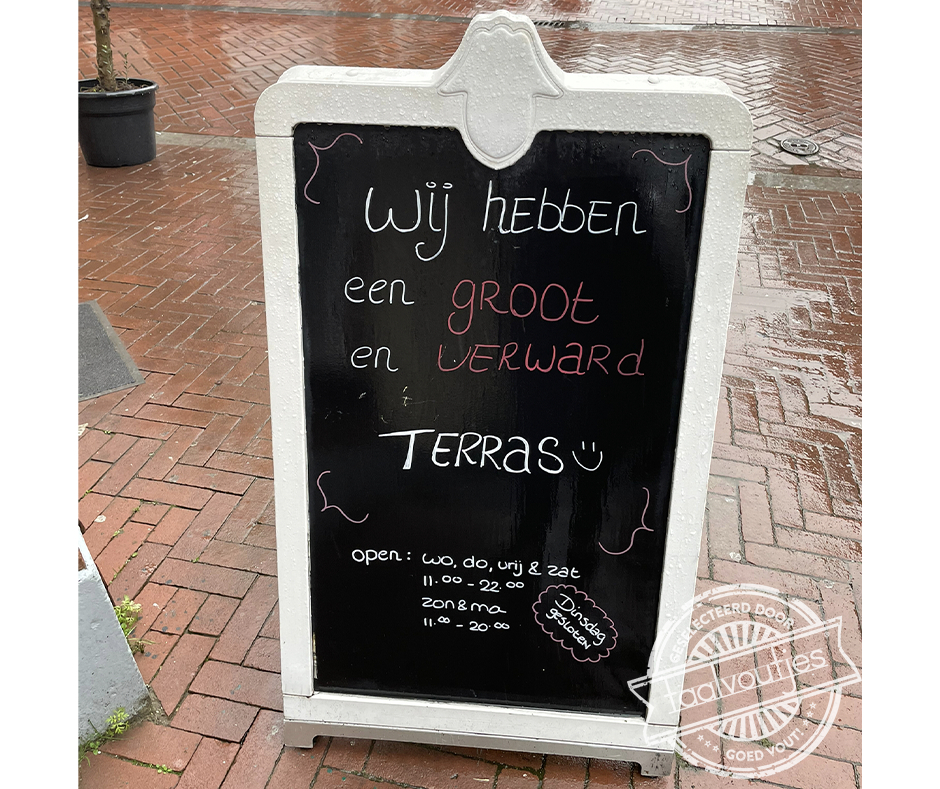 Wij hebben
een groot
en verward
Terras
open: wo, do, vrij & zat
11.00 - 22.00
zon & ma
11.00 - 20.00
Dinsdag
gesloten
GESELECTEERD DOOR
taalvoutjes
GOED VOUT!